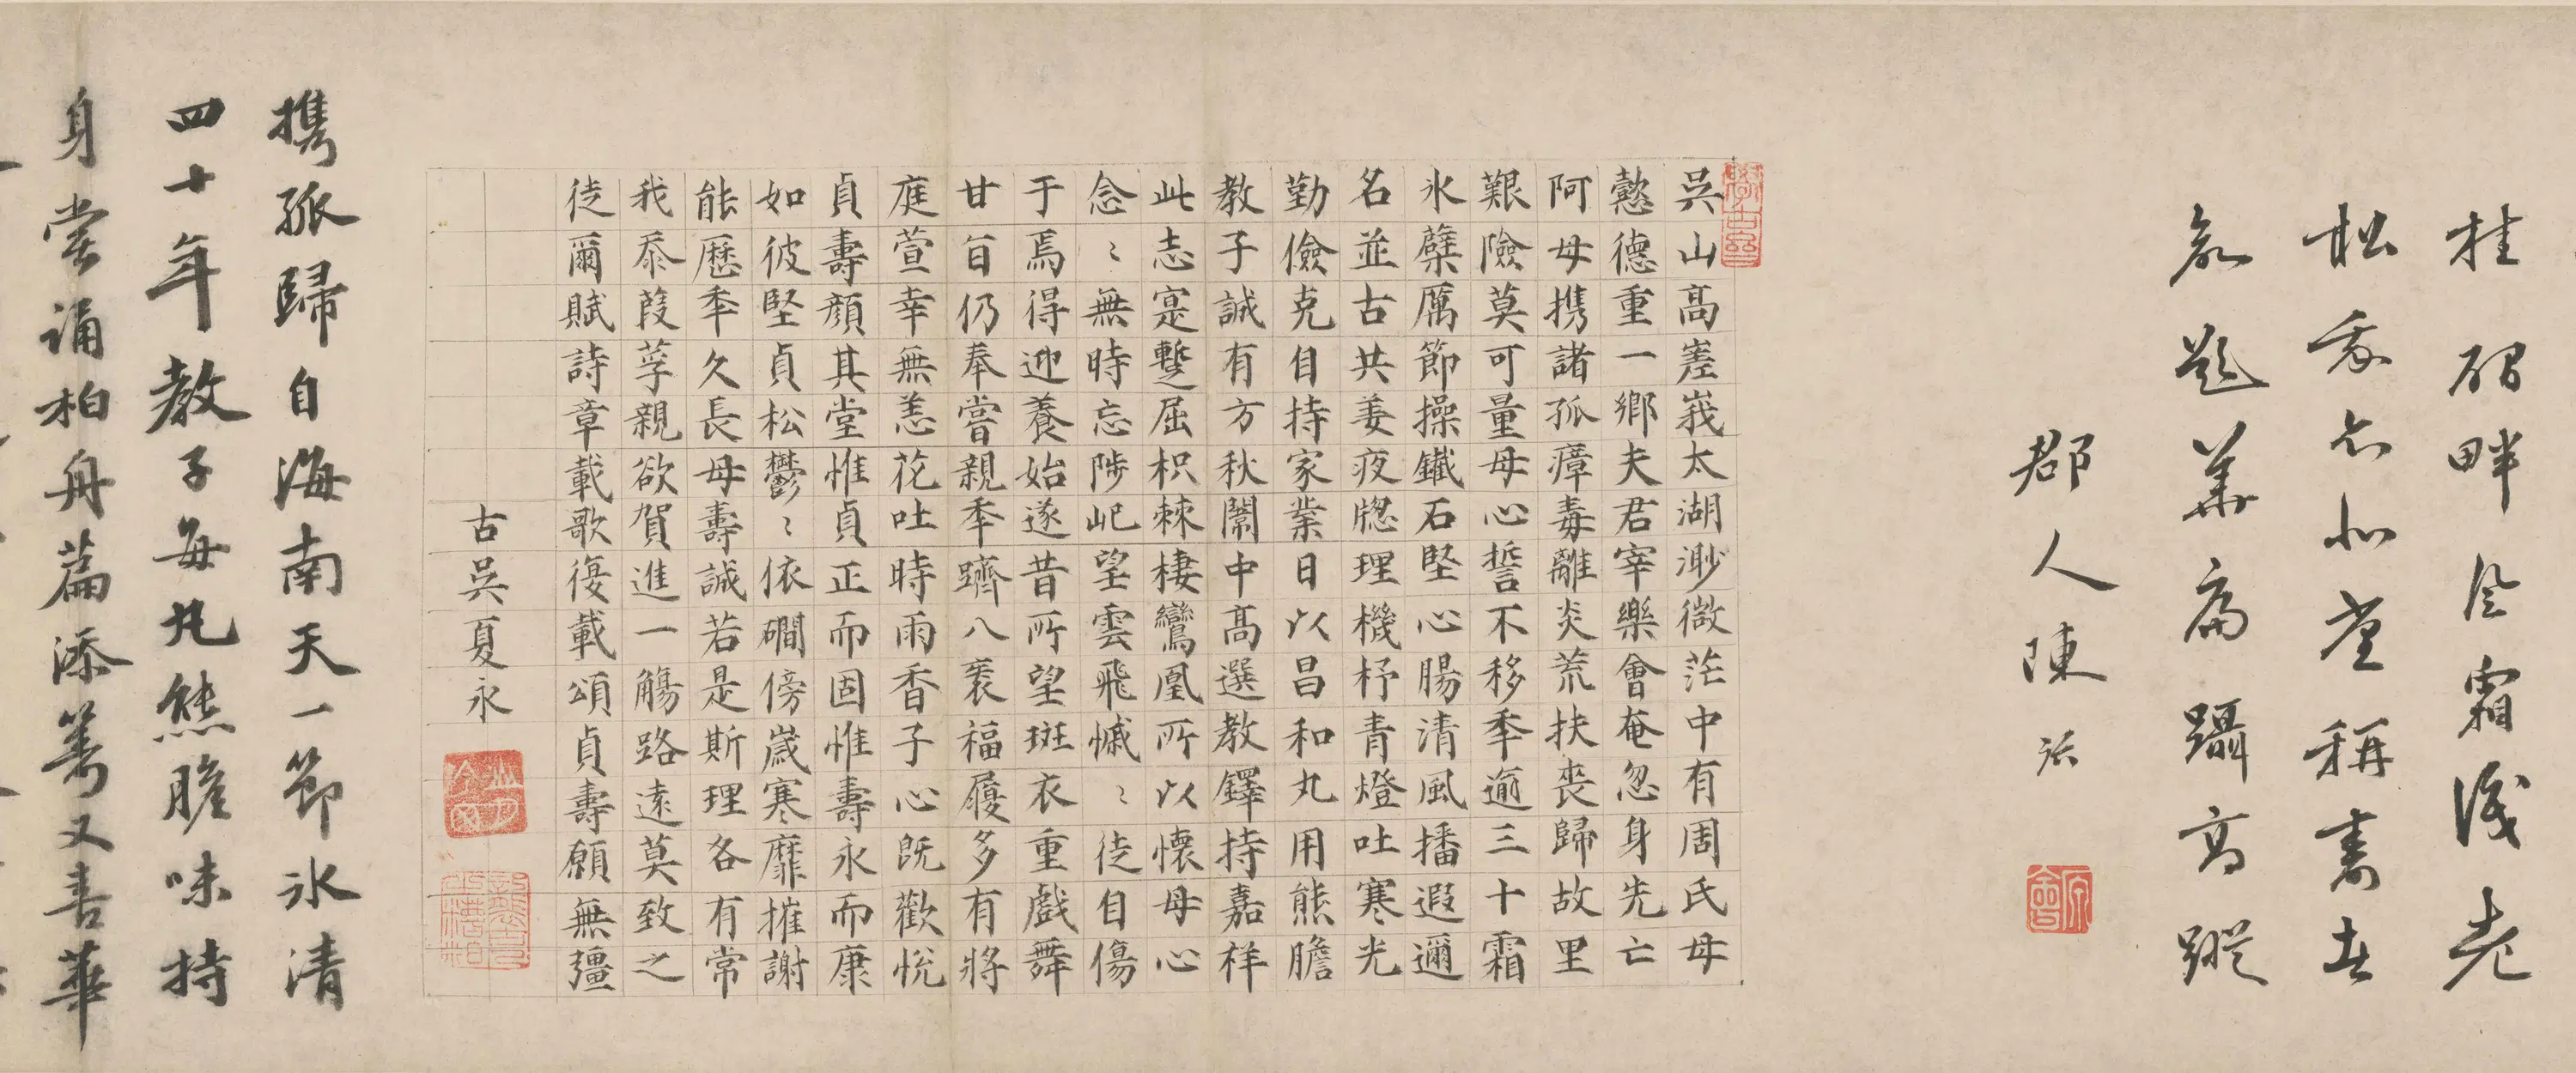 桂砌畔污霜後老
松承亦北堂稱壽在
哀題華扁躡高蹤
郡人陳
吳山高嵳峩太湖渺微茫中有周氏母
懿德重一鄉夫君宰樂會奄忽身先亡
阿母携諸孤瘴毒離炎荒扶喪歸故里
艱險莫可量母心誓不移秊逾三十霜
氷蘗厲節操鐵石堅心腸清風播遐邇
名並古共姜夜牕理機杼青燈吐寒光
勤儉克自持家業日以昌和丸用熊膽
教子誠有方秋闈中高選教鐸持嘉祥
此志寔蹔屈枳棘棲鸞凰所以懷母心
念〻無時忘陟屺望雲飛慽〻徒自傷
于焉得迎養始遂昔所望斑衣重戲舞
甘旨仍奉嘗親秊躋八袠福履多有將
庭萱幸無恙花吐時雨香子心既歡悅
貞壽顏其堂惟貞正而固惟壽永而康
如彼堅貞松鬱〻依磵傍歲寒靡摧謝
能歷秊久長母壽誠若是斯理各有常
我忝葭莩親欲賀進一觴路遠莫致之
徒爾賦詩章載歌復載頌貞壽願無彊
古吳夏永
携孤歸自海南天一節氷清
四十年教子每丸熊膽味持
身嘗誦柏舟篇添籌又喜華